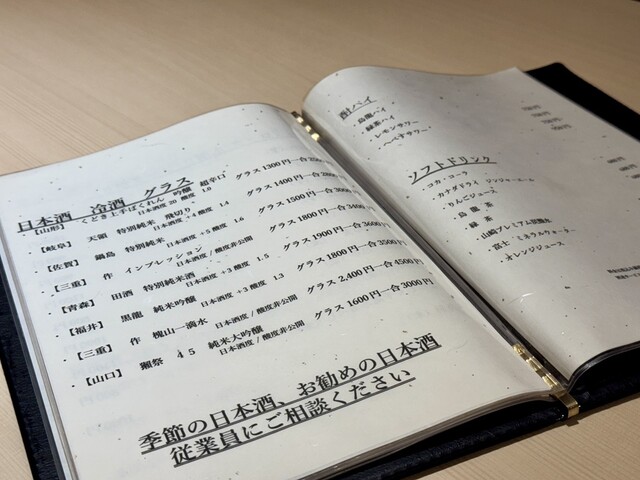 日本酒　冷酒　グラス
・【山形】　くどき上手ばくれん　吟醸　超辛口　グラス1300円
日本酒度 20 酸度 1.0
・【岐阜】　天領　特別純米　飛切り　グラス1400円一合
日本酒度 +4 酸度 1.4
・【佐賀】　鍋島　特別純米　グラス1500円一合
日本酒度 +5 酸度 1.6
・【三重】　作　インプレッション　グラス1800円一合
日本酒度 / 酸度非公開
・【青森】　田酒　特別純米酒　グラス1900円一合
日本酒度 +3 酸度 1.5
・【福井】　黒龍　純米吟醸　グラス1800円一合
日本酒度 +3 酸度 1.3
・【三重】　作　槐山一滴水　グラス2,400円一合4500円
日本酒度 / 酸度非公開
・【山口】　獺祭　４５　純米大吟醸　グラス1600円一合3000円
日本酒度 / 酸度非公開
季節の日本酒、お勧めの日本酒
従業員にご相談ください
酎ハイ
・烏龍ハイ
・緑茶ハイ
・レモンサワー
ソフトドリンク
・コカ・コーラ
・カナダドライ　ジンジャーエール
・りんごジュース
・烏龍茶
・緑茶
・山崎プレミアム炭酸水
・富士　ミネラルウォーター
・オレンジジュース